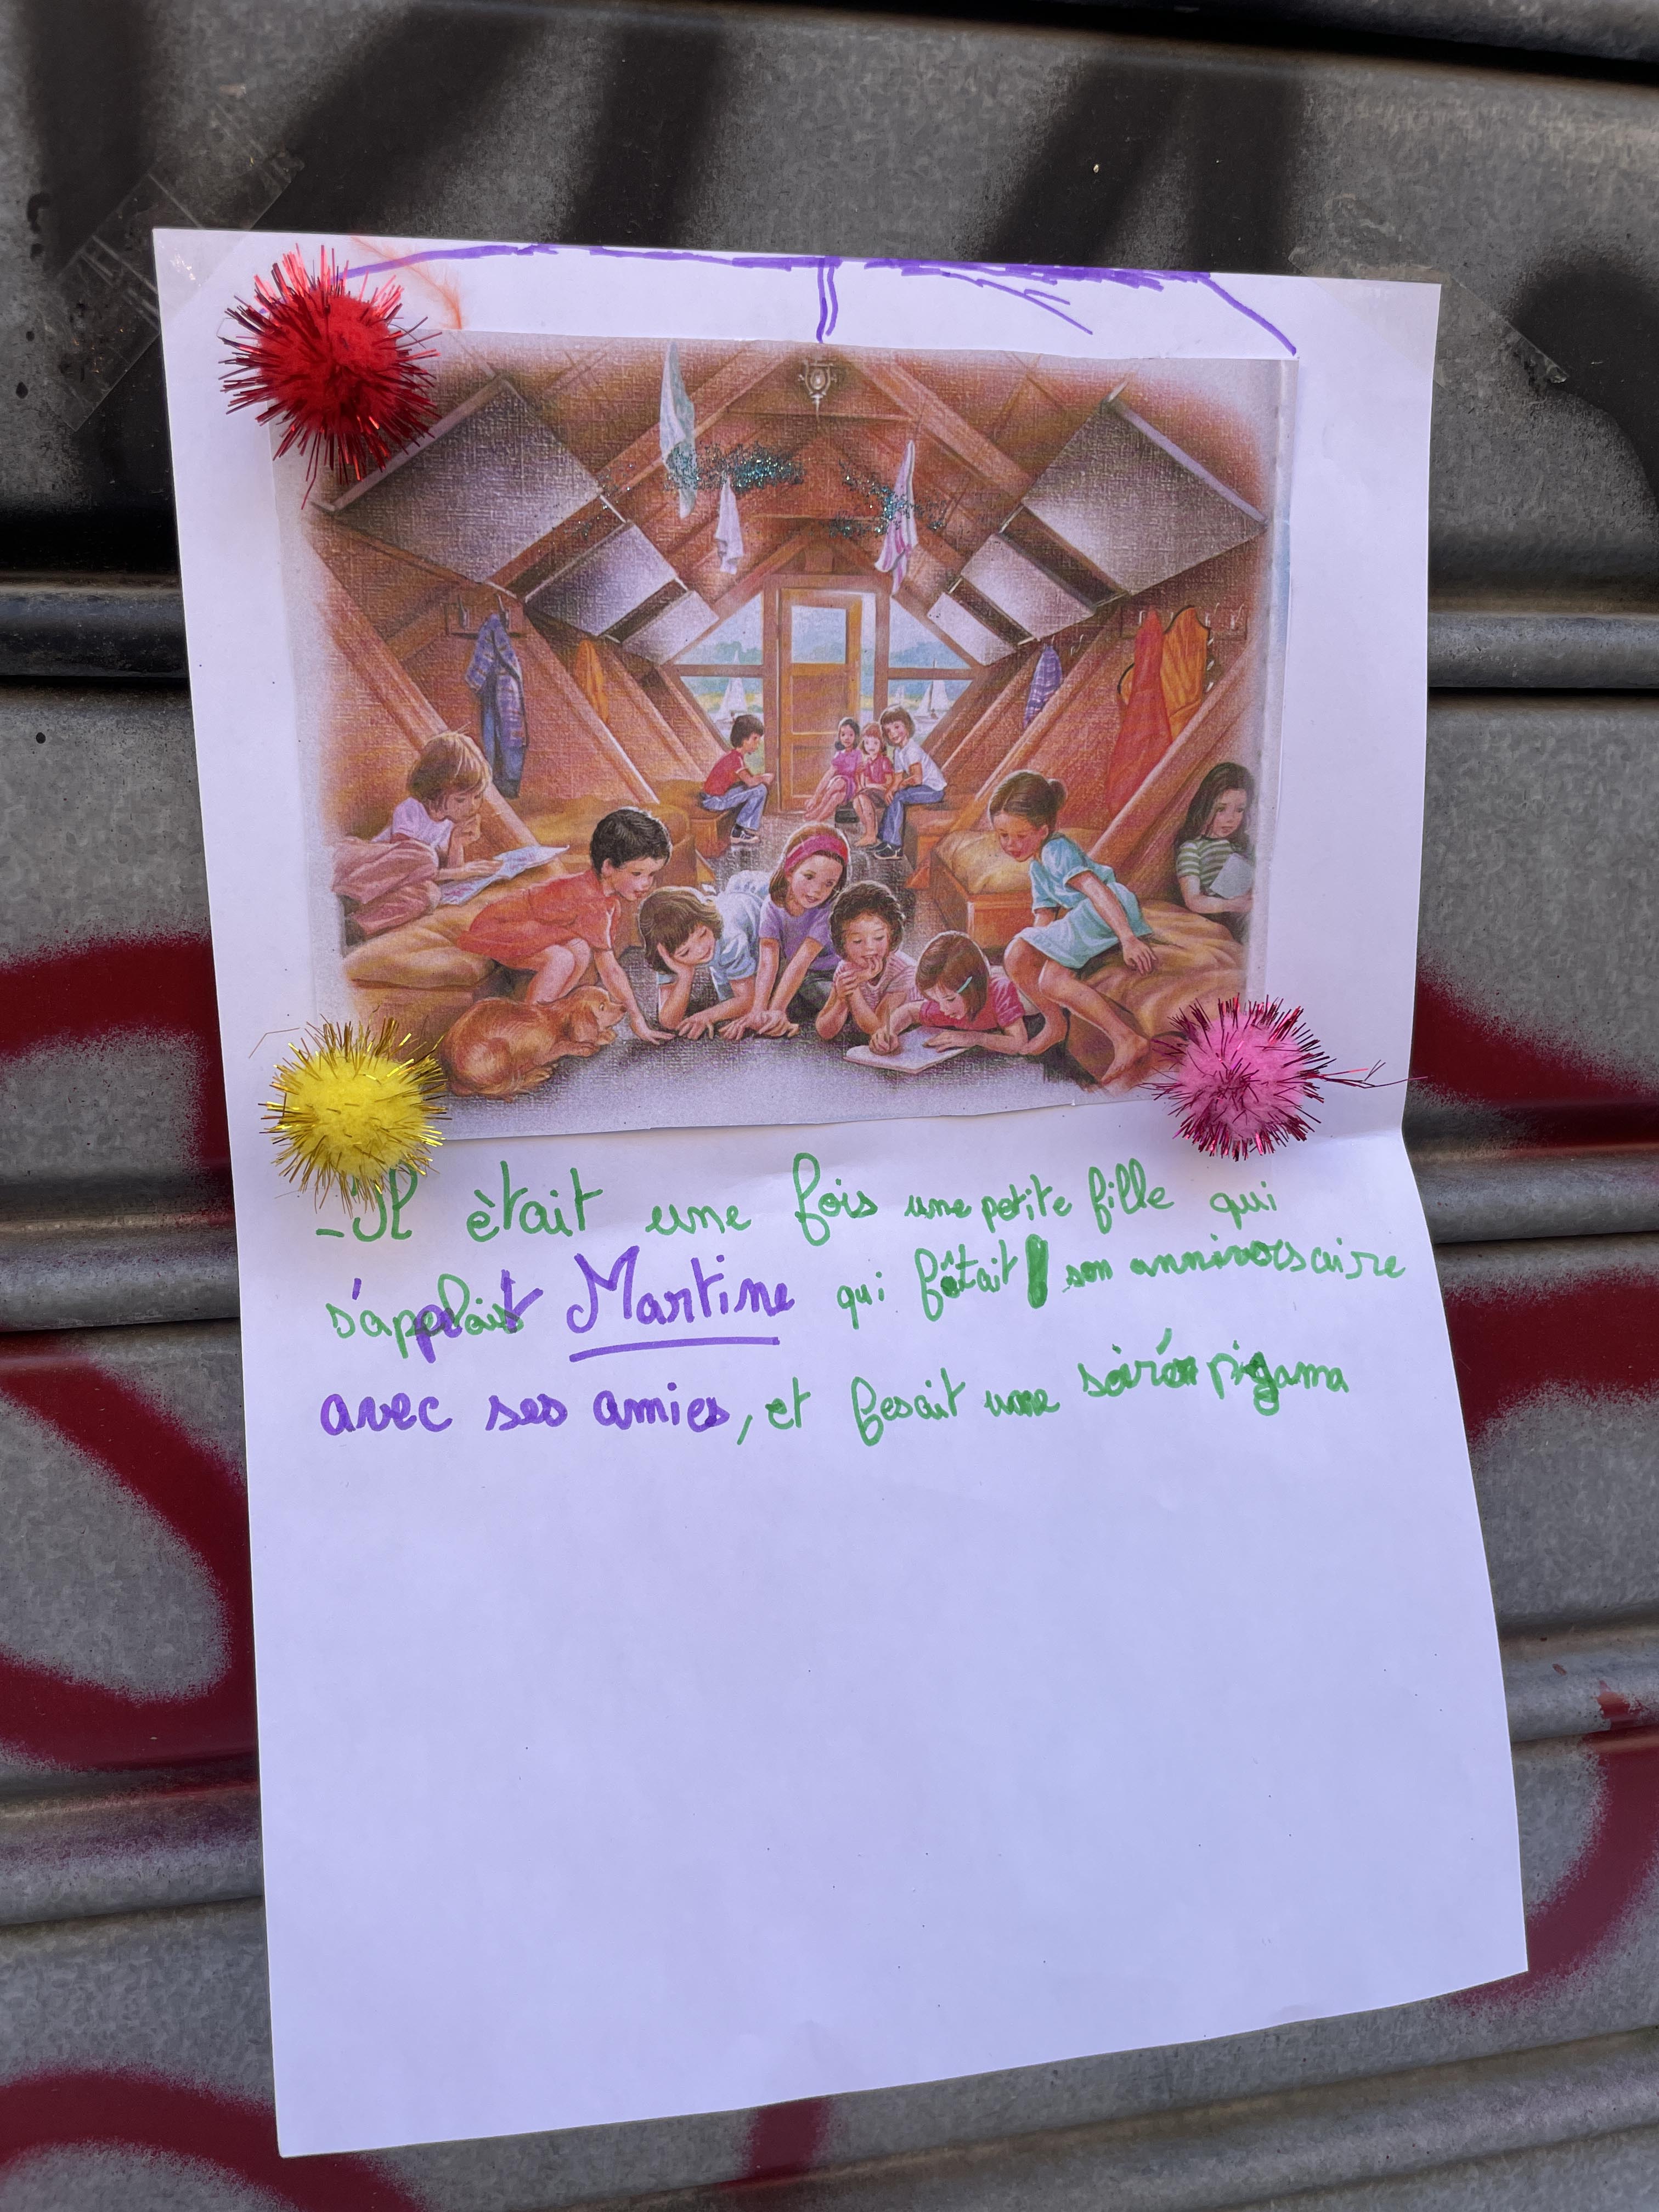 -Il ètait une fois une petite fille qui
s'applait Martine qui fêtait son anniversaire
avec ses amies, et fesait une soirée pigama